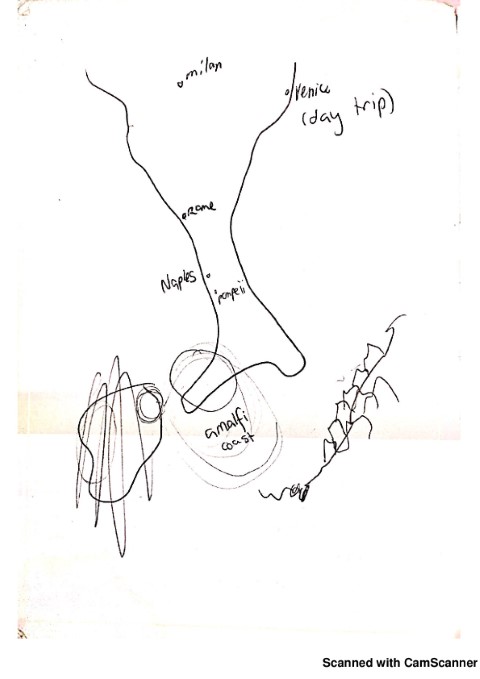 milan
Venice
(day trip)
Rome
Naples
Pompeii
amalfi
coast
Scanned with CamScanner